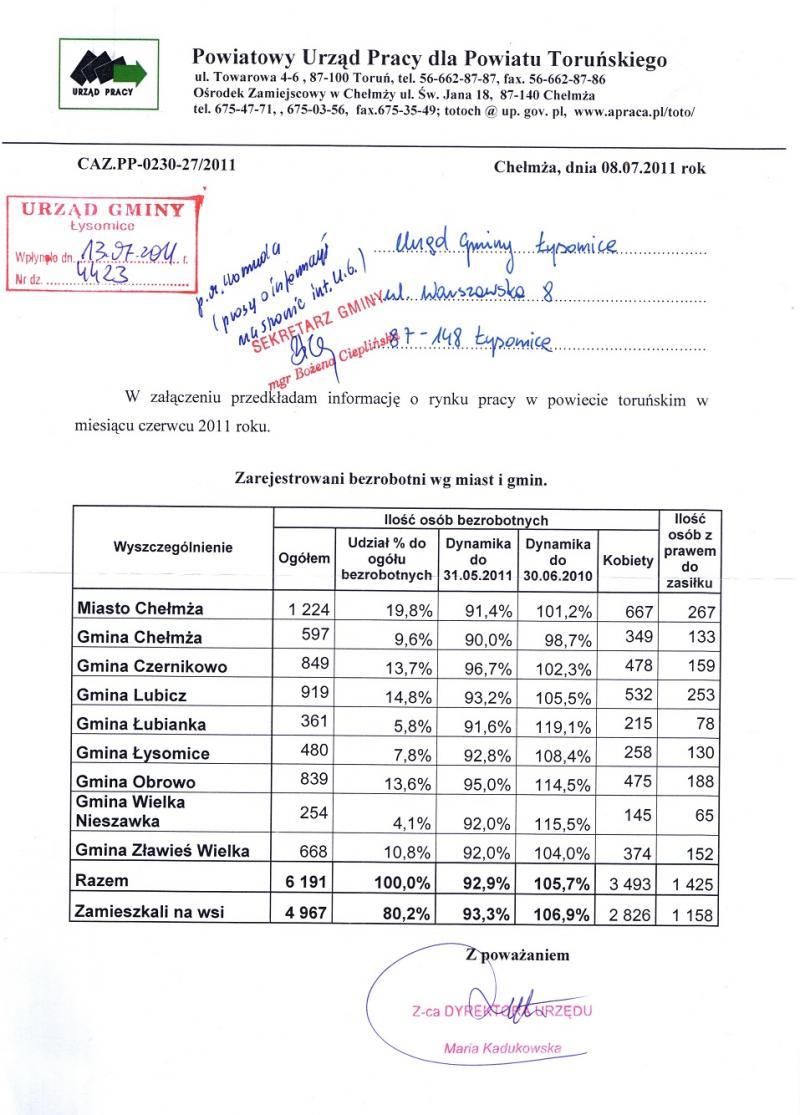 URZĄD PRACY
Powiatowy Urząd Pracy dla Powiatu Toruńskiego
ul. Towarowa 4-6 , 87-100 Toruń, tel. 56-662-87-87, fax. 56-662-87-86
Ośrodek Zamiejscowy w Chełmży ul. Św. Jana 18, 87-140 Chełmża
tel. 675-47-71, , 675-03-56, fax.675-35-49; totoch @ up. gov. pl, www.apraca.pl/toto/
CAZ.PP-0230-27/2011
Chełmża, dnia 08.07.2011 rok
URZĄD GMINY
Łysomice
Wpłynęło dn. 13.07.2011 r.
Nr dz. 4423
(proszę o informację
na stronie int. U.G.)
SEKRETARZ GMINY
mgr Bożena Cieplińska
Urząd Gminy Łysomice
ul. Warszawska 8
87-148 Łysomice
W załączeniu przedkładam informację o rynku pracy w powiecie toruńskim w
miesiącu czerwcu 2011 roku.
Zarejestrowani bezrobotni wg miast i gmin.
Wyszczególnienie
Ilość osób bezrobotnych
Ilość osób z prawem do zasiłku
Ogółem
Udział % do ogółu bezrobotnych
Dynamika do 31.05.2011
Dynamika do 30.06.2010
Kobiety
Miasto Chełmża 1 224 19,8% 91,4% 101,2% 667 267
Gmina Chełmża 597 9,6% 90,0% 98,7% 349 133
Gmina Czernikowo 849 13,7% 96,7% 102,3% 478 159
Gmina Lubicz 919 14,8% 93,2% 105,5% 532 253
Gmina Łubianka 361 5,8% 91,6% 119,1% 215 78
Gmina Łysomice 480 7,8% 92,8% 108,4% 258 130
Gmina Obrowo 839 13,6% 95,0% 114,5% 475 188
Gmina Wielka Nieszawka 254 4,1% 92,0% 115,5% 145 65
Gmina Zławieś Wielka 668 10,8% 92,0% 104,0% 374 152
Razem 6 191 100,0% 92,9% 105,7% 3 493 1 425
Zamieszkali na wsi 4 967 80,2% 93,3% 106,9% 2 826 1 158
Z poważaniem
Z-ca DYREKTORA URZĘDU
Maria Kadukowska